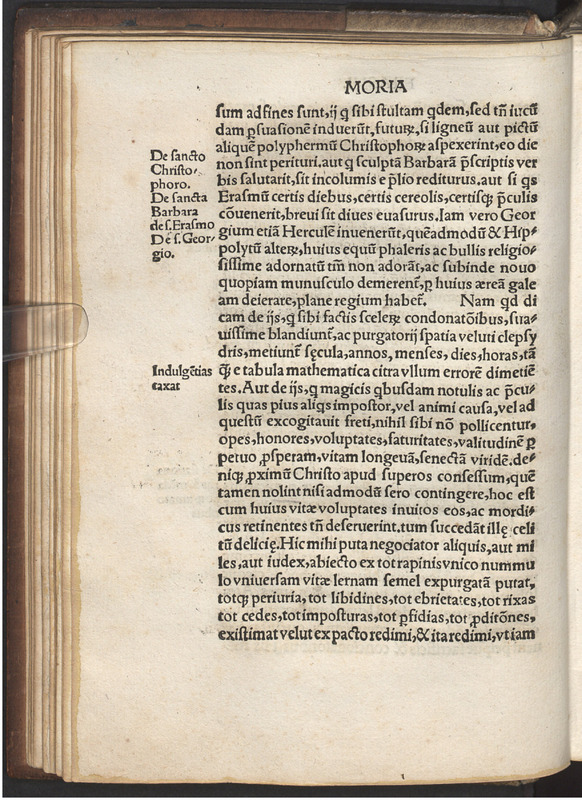 MORIA
sum adfines sunt, ij q̃ sibi stultam qdem, sed tñ iucũ
dam ꝑsuasionẽ induerũt, futuꝝ, si ligneũ aut pictũ
aliquẽ polyphermũ Christophoꝝ aspexerint, eo die
non sint perituri. aut q̃ sculptã Barbarã p̃scriptis ver
bis salutarit, sit incolumis e p̃lio rediturus. aut si qs
Erasmũ certis diebus, certis cereolis, certisqꝫ p̃culis
cõuenerit, breui sit diues euasurus. Iam vero Geor
gium etiã Herculẽ inuenerũt, quẽadmodũ & Hip⸗
polytũ alteꝝ, huius equũ phaleris ac bullis religio⸗
sissime adornatũ tm̃ non adorãt, ac subinde nouo
quopiam munusculo demerent᷑, ꝑ huius æreã gale
am deierare, plane regium habet᷑. Nam qd di
cam de ijs, q̃ sibi factis sceleꝝ condonatõibus, sua⸗
uissime blandiunt᷑, ac purgatorij spatia veluti clepsy
dris, metiunt᷑ sęcula, annos, menses, dies, horas, tã
q̃ꝫ e tabula mathematica citra vllum errorẽ dimetiẽ
tes. Aut de ijs, q̃ magicis qbusdam notulis ac p̃cu⸗
lis quas pius aliqs impostor, vel animi causa, vel ad
quęstũ excogitauit freti, nihil sibi nõ pollicentur,
opes, honores, voluptates, saturitates, valitudinẽ ꝑ
petuo ꝓsperam, vitam longeuã, senectã viridẽ. de⸗
niqꝫ ꝓximũ Christo apud superos consessum, quẽ
tamen nolint nisi admodũ sero contingere, hoc est
cum huius vitæ voluptates inuitos eos, ac mordi⸗
cus retinentes tñ deseruerint. tum succedãt illę celi
tũ delicię. Hic mihi puta negociator aliquis, aut mi
les, aut iudex, abiecto ex tot rapinis vnico nummu
lo vniuersam vitæ lernam semel expurgatã putat,
totqꝫ periuria, tot libidines, tot ebrietates, tot rixas
tot cedes, tot imposturas, tot ꝑfidias, tot ꝓditões,
existimat velut ex pacto redimi, & ita redimi, vt iam
De sancto
Christo⸗
phoro.
De sancta
Barbara
de s. Erasmo
De s. Geor⸗
gio.
Indulgẽtias
taxat